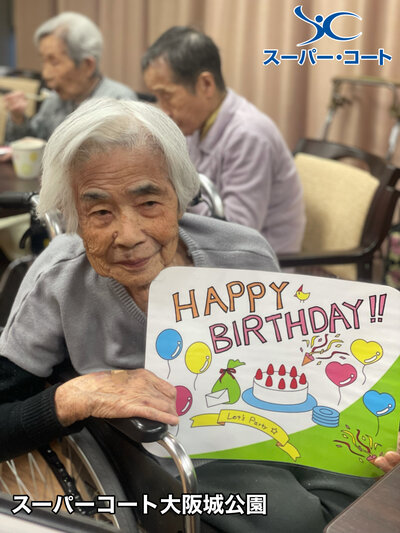 スーパー・コート
HAPPY
BIRTHDAY!!
Let's Party☆
スーパーコート大阪城公園